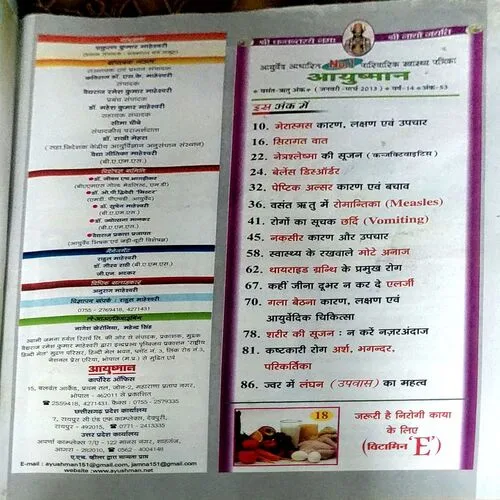 संरक्षक
शकुन्तला कुमार माहेश्वरी
संपादक
वैद्यराज रमेश कुमार माहेश्वरी
प्रबंध संपादक
डॉ. महेश कुमार माहेश्वरी
सहायक संपादक
सीमा चौबे
संपादकीय परामर्शदाता
डॉ. राखी मेहरा
वैद्या नीतिका माहेश्वरी
(बी.ए.एम.एस.)
डॉ. ओ.पी.द्विवेदी
डॉ. सुषेन माहेश्वरी
(बी.ए.एम.एस.)
डॉ. ज्योत्सना मालकर
(बी.ए.एम.एस.)
वैद्यराज प्रकाश प्रजापत
मैनेजमेंट
राहुल माहेश्वरी
डॉ. गौरव राठी (बी.ए.एम.एस.)
विधिक सलाहकार
अनुराग माहेश्वरी
विज्ञापन संपर्क : राहुल माहेश्वरी
0755 - 2769418, 4271431
नागेश कोरोनिया, महेन्द्र सिंह
आयुष्मान
कार्पोरेट ऑफिस
भोपाल - 462011 से प्रकाशित
☎ 2559418, 4271431. फैक्स : 0755 - 2579335
छत्तीसगढ़ प्रदेश कार्यालय
रायपुर - 492015, ☎ 0771 - 2413335
उत्तर प्रदेश कार्यालय
आगरा - 282010, ☎ 0562 - 4004148
E-mail : ayushman151@gmail.com, jamna151@gmail.com
website : www.ayushman.net
श्री धन्वन्तरये नमः श्री नाथो जयति
आयुर्वेद आधारित No.1 पारिवारिक स्वास्थ्य पत्रिका
आयुष्मान
• वसंत-ऋतु अंक • (जनवरी - मार्च 2013) • वर्ष-14 • अंक-53
इस अंक में
10. मेरास्मस कारण, लक्षण एवं उपचार
16. सिरागत वात
22. नेत्रश्लेष्मा की सूजन (कन्जक्टिवाइटिस)
24. बेलेंस डिसॉर्डर
32. पेप्टिक अल्सर कारण एवं बचाव
36. वसंत ऋतु में रोमान्तिका (Measles)
41. रोगों का सूचक छर्दि (Vomiting)
45. नकसीर कारण और उपचार
58. स्वास्थ्य के रखवाले मोटे अनाज
62. थायराइड ग्रन्थि के प्रमुख रोग
67. कहीं जीना दूभर न कर दे एलर्जी
70. गला बैठना कारण, लक्षण एवं
आयुर्वेदिक चिकित्सा
78. शरीर की सूजन : न करें नज़रअंदाज
81. कष्टकारी रोग अर्श, भगन्दर,
परिकर्तिका
86. ज्वर में लंघन (उपवास) का महत्व
18
जरूरी है निरोगी काया
के लिए
(विटामिन 'E')